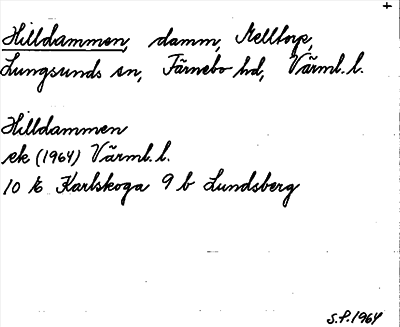 +
Hilldammen, damm, Nelltorp,
Lungsunds sn, Färnebo hd, Värml. l.
Hilldammen
ek (1964) Värml. l.
10 E Karlskoga 9 b Lundsberg
S.P. 1964